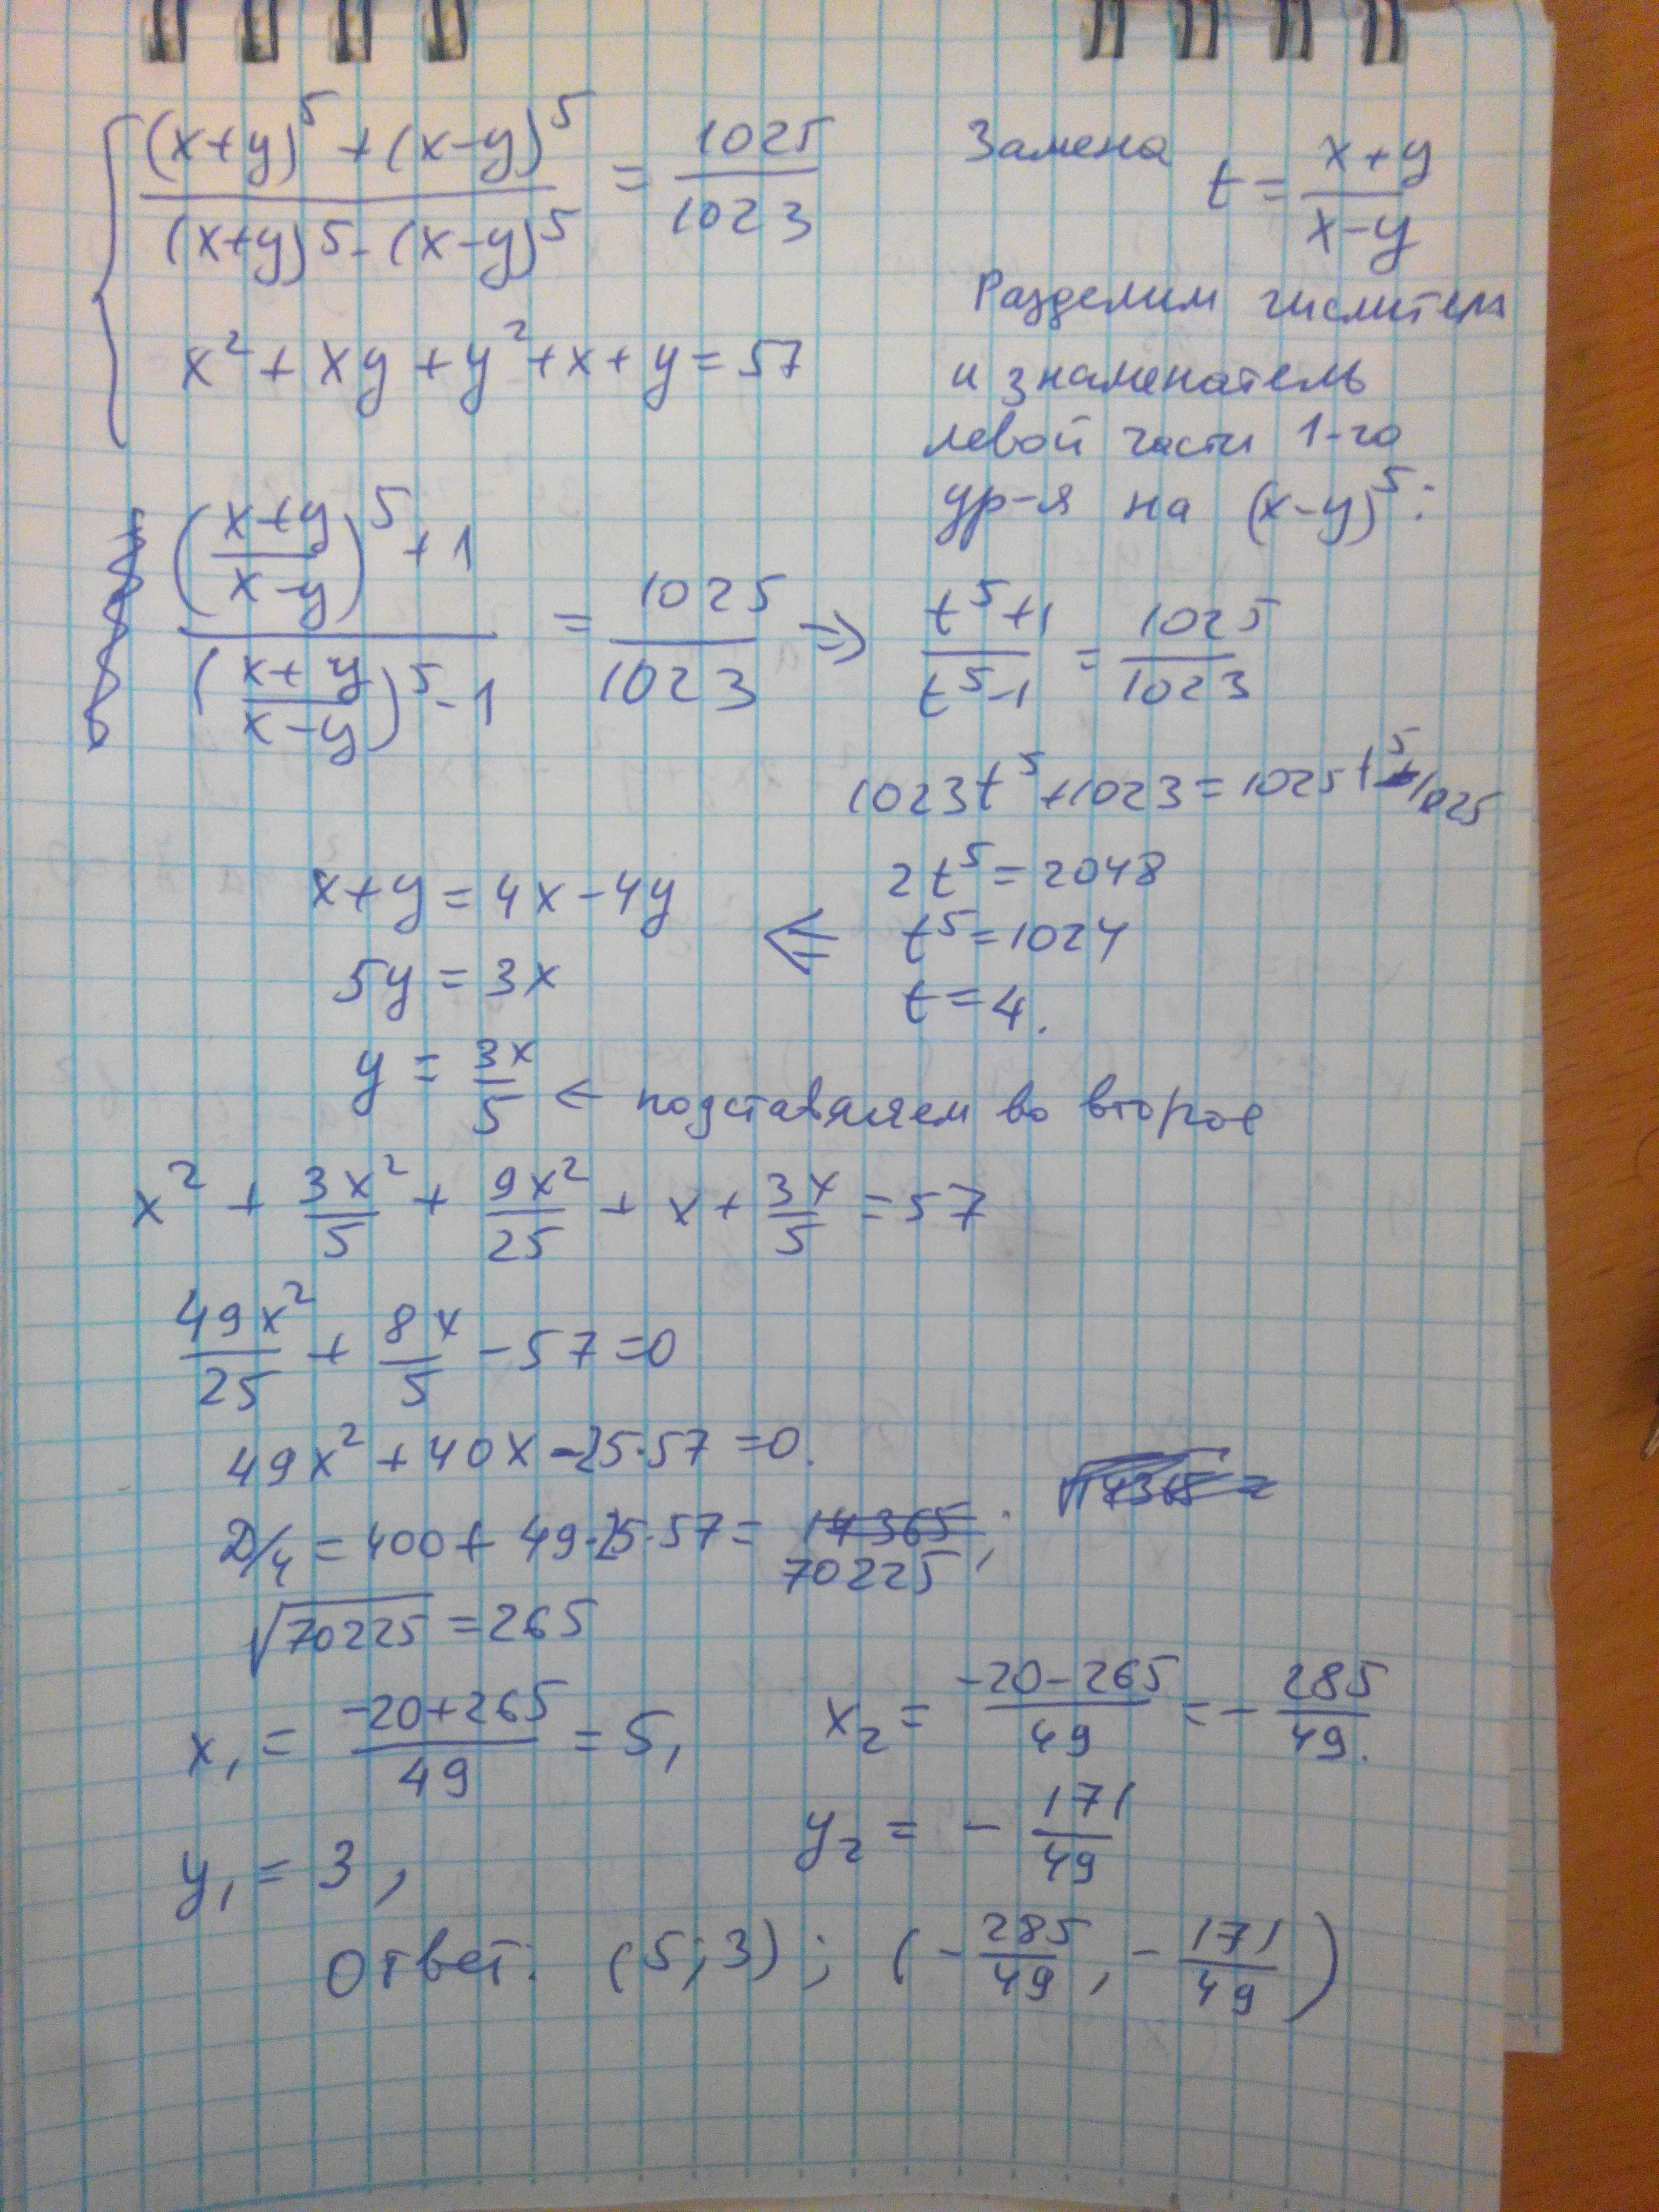 (x+y)^5 + (x-y)^5 / (x+y)^5 - (x-y)^5 = 1025/1023
x² + xy + y² + x + y = 57
Замена t = (x+y)/(x-y)
Разделим числитель
и знаменатель
левой части 1-го
ур-я на (x-y)^5:
(((x+y)/(x-y))^5 + 1) / (((x+y)/(x-y))^5 - 1) = 1025/1023 ⇒ (t^5+1)/(t^5-1) = 1025/1023
1023t^5 + 1023 = 1025t^5 - 1025
2t^5 = 2048
t^5 = 1024
t = 4.
⇐
x+y = 4x - 4y
5y = 3x
y = 3x/5 ← подставляем во второе
x² + 3x²/5 + 9x²/25 + x + 3x/5 = 57
49x²/25 + 8x/5 - 57 = 0
49x² + 40x - 25·57 = 0.
D/4 = 400 + 49·25·57 = 70225;
√70225 = 265
x₁ = (-20+265)/49 = 5,
x₂ = (-20-265)/49 = -285/49.
y₁ = 3,
y₂ = -171/49
Ответ: (5;3); (-285/49, -171/49)